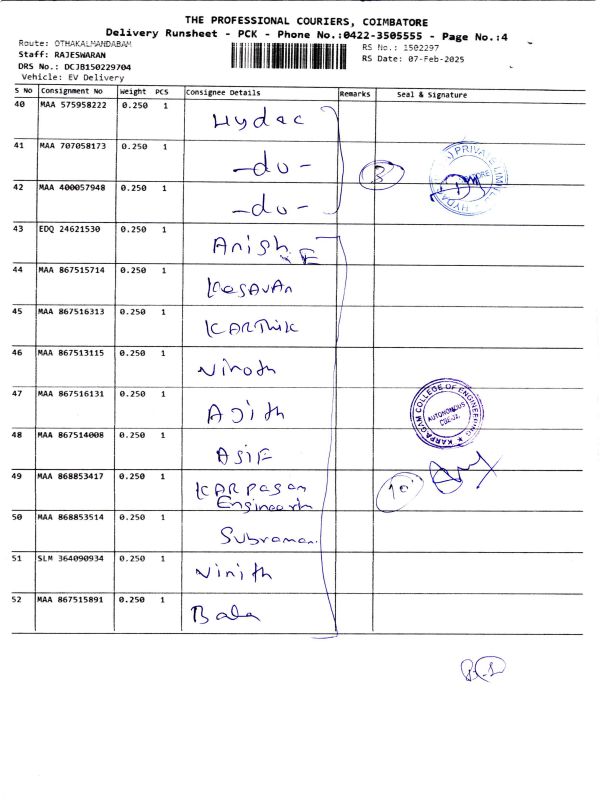 THE PROFESSIONAL COURIERS, COIMBATORE
Delivery Runsheet - PCK - Phone No.:0422-3505555 - Page No.:4
Route: OTHAKALMANDABAM
Staff: RAJESWARAN
DRS No.: DCJB150229704
Vehicle: EV Delivery
RS No.: 1502297
RS Date: 07-Feb-2025
S No Consignment No Weight PCS Consignee Details Remarks Seal & Signature
40 MAA 575958222 0.250 1 Hydac
41 MAA 707058173 0.250 1 -do-
42 MAA 400057948 0.250 1 -do-
3
43 EDQ 24621530 0.250 1 Anish
44 MAA 867515714 0.250 1 Kesavan
45 MAA 867516313 0.250 1 KARThik
46 MAA 867513115 0.250 1 Niroth
47 MAA 867516131 0.250 1 AJith
48 MAA 867514008 0.250 1 ASIF
KARPAGAM COLLEGE OF ENGINEERING
AUTONOMOUS
CBE-32.
49 MAA 868853417 0.250 1 KARPagam
10
50 MAA 868853514 0.250 1 Subraman
51 SLM 364090934 0.250 1 Vinith
52 MAA 867515891 0.250 1 Bala